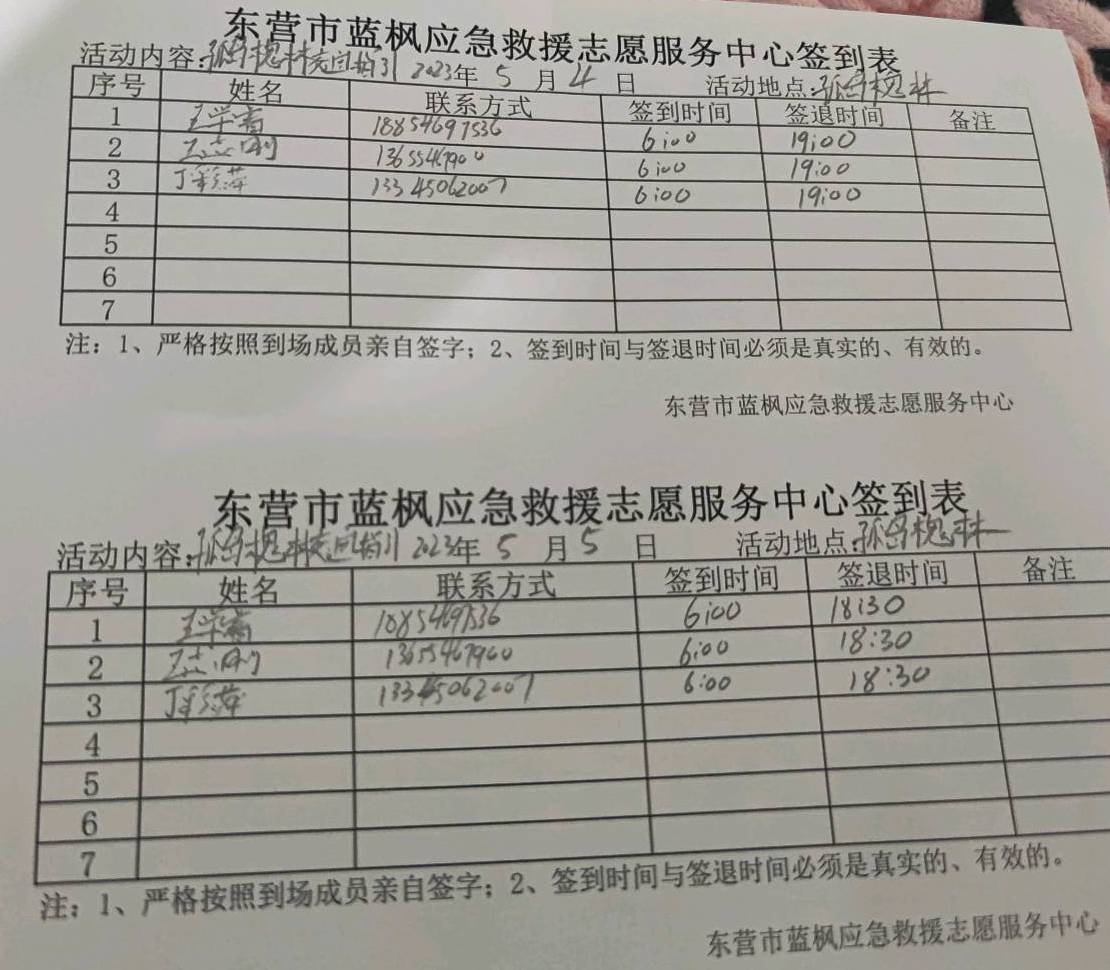 东营市蓝枫应急救援志愿服务中心签到表
活动内容:孤岛槐林 2023年 5 月 4 日 活动地点:孤岛槐林
序号 姓名 联系方式 签到时间 签退时间 备注
1 18854697536 6:00 19:00
2 王志刚 6:00 19:00
3 丁彩萍 13345062007 6:00 19:00
4
5
6
7
注：1、严格按照到场成员亲自签字；2、签到时间与签退时间必须是真实的、有效的。
东营市蓝枫应急救援志愿服务中心
东营市蓝枫应急救援志愿服务中心签到表
活动内容:孤岛槐林 2023年 5 月 5 日 活动地点:孤岛槐林
序号 姓名 联系方式 签到时间 签退时间 备注
1 6:00 18:30
2 王志刚 13655467960 6:00 18:30
3 丁彩萍 13345062007 6:00 18:30
4
5
6
7
注：1、严格按照到场成员亲自签字；2、签到时间与签退时间必须是真实的、有效的。
东营市蓝枫应急救援志愿服务中心